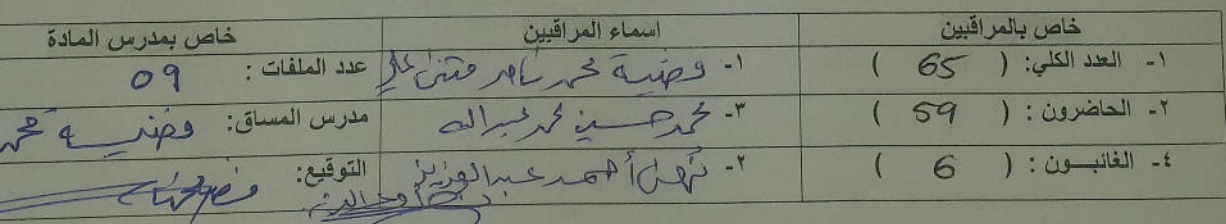 خاص بالمراقبين اسماء المراقبين خاص بمدرس المادة
١- العدد الكلي: ( 65 ) ١- وضية محمد ناصر مثنى علي عدد الملفات : ٥٩
٢- الحاضرون : ( 59 ) ٣- محمد حسين محمد عبدالله مدرس المساق: وضية محمد
٤- الغائبون : ( 6 ) ٢- أحمد عبدالعزيز التوقيع: